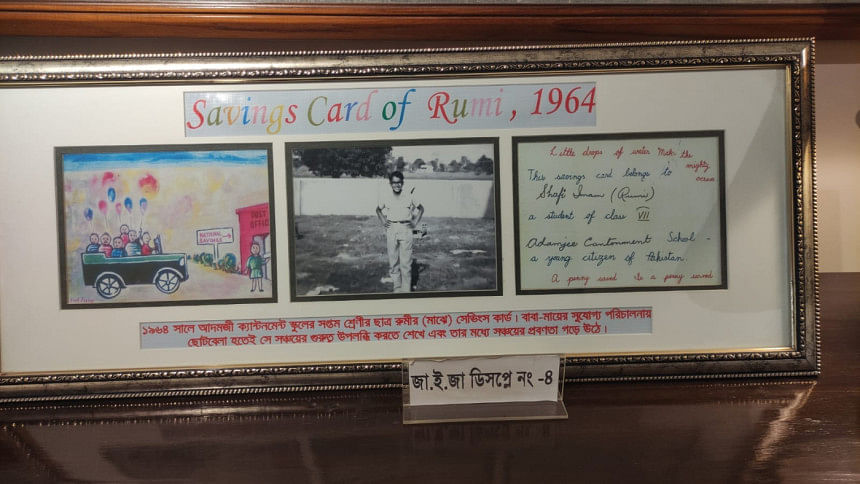 Savings Card of Rumi, 1964
NATIONAL
SAVINGS
POST
OFFICE
Little drops of water Make the
mighty
ocean
This savings card belongs to
Shafi Imam (Rumi)
a student of class VII
Adamjee Cantonment School -
a young citizen of Pakistan.
A penny saved is a penny earned
১৯৬৪ সালে আদমজী ক্যান্টনমেন্ট স্কুলের সপ্তম শ্রেণীর ছাত্র রুমীর (মাঝে) সেভিংস কার্ড। বাবা-মায়ের সুযোগ্য পরিচালনায়
ছোটবেলা হতেই সে সঞ্চয়ের গুরুত্ব উপলব্ধি করতে শেখে এবং তার মধ্যে সঞ্চয়ের প্রবণতা গড়ে উঠে।
জা.ই.জা ডিসপ্লে নং -৪